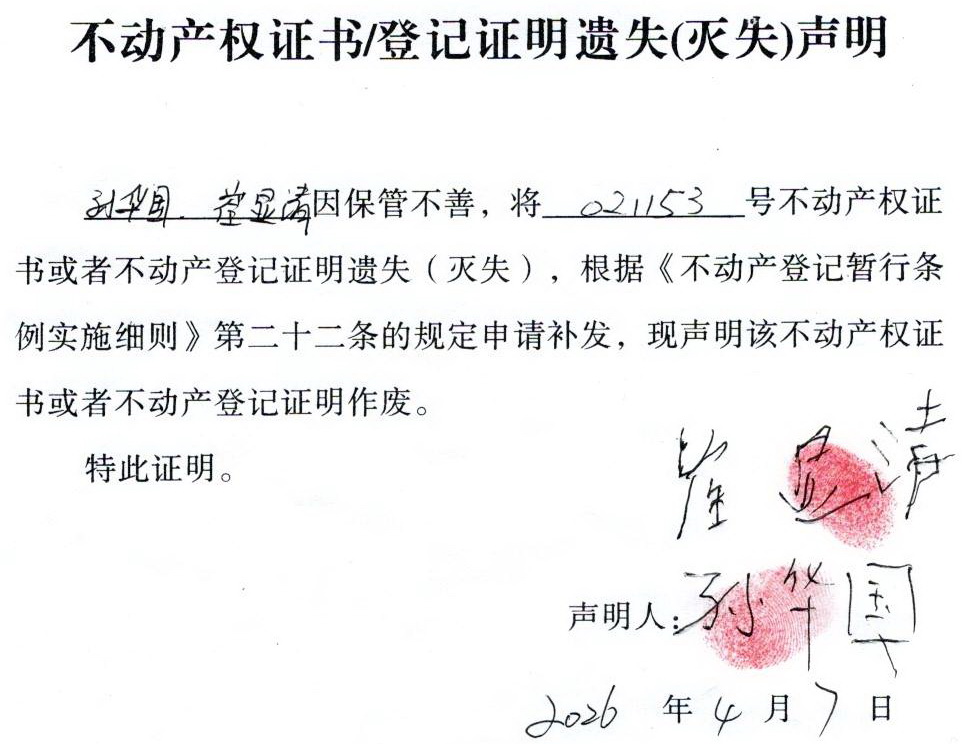 不动产权证书/登记证明遗失(灭失)声明
孙华国、崔显清因保管不善，将 021153 号不动产权证
书或者不动产登记证明遗失（灭失），根据《不动产登记暂行条
例实施细则》第二十二条的规定申请补发，现声明该不动产权证
书或者不动产登记证明作废。
特此证明。
崔显清
声明人：孙华国
2026 年 4 月 7 日